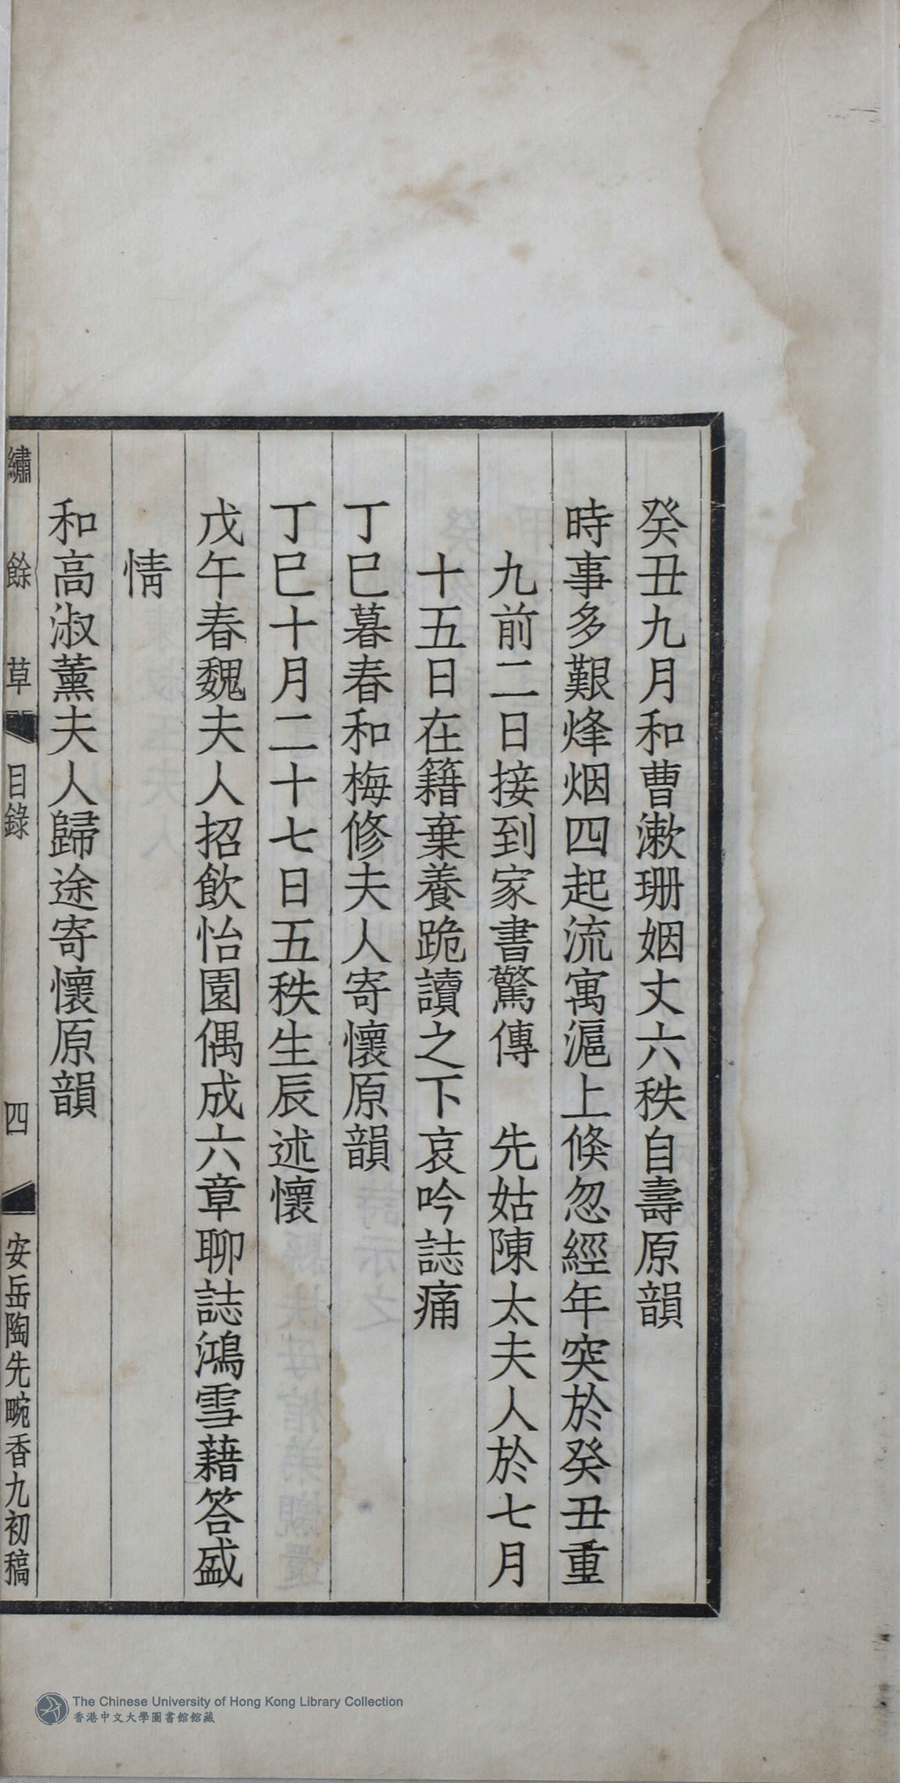 癸丑九月和曹漱珊姻丈六秩自壽原韻
時事多艱烽烟四起流寓滬上倐忽經年突於癸丑重
九前二日接到家書驚傳　先姑陳太夫人於七月
十五日在籍棄養跪讀之下哀吟誌痛
丁巳暮春和梅修夫人寄懷原韻
丁巳十月二十七日五秩生辰述懷
戊午春魏夫人招飲怡園偶成六章聊誌鴻雪藉答盛
情
和高淑薰夫人歸途寄懷原韻
繡餘草 目錄 四 安岳陶先畹香九初稿
The Chinese University of Hong Kong Library Collection
香港中文大學圖書館館藏